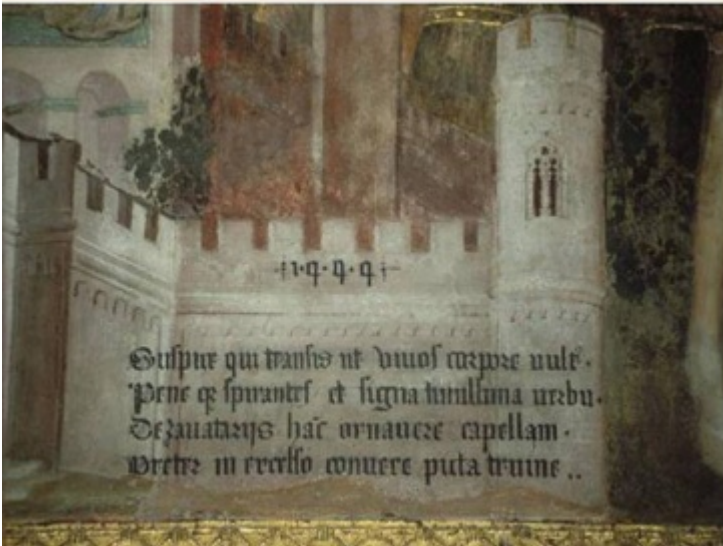 ·1·4·4·4·
Suspice qui transis ut viuos corpore uult·
Pene qȝ spirantes et signa simillima uerbis·
De zauatarijs hāc ornauere capellam·
Preter in excelso conuexe picta truine..